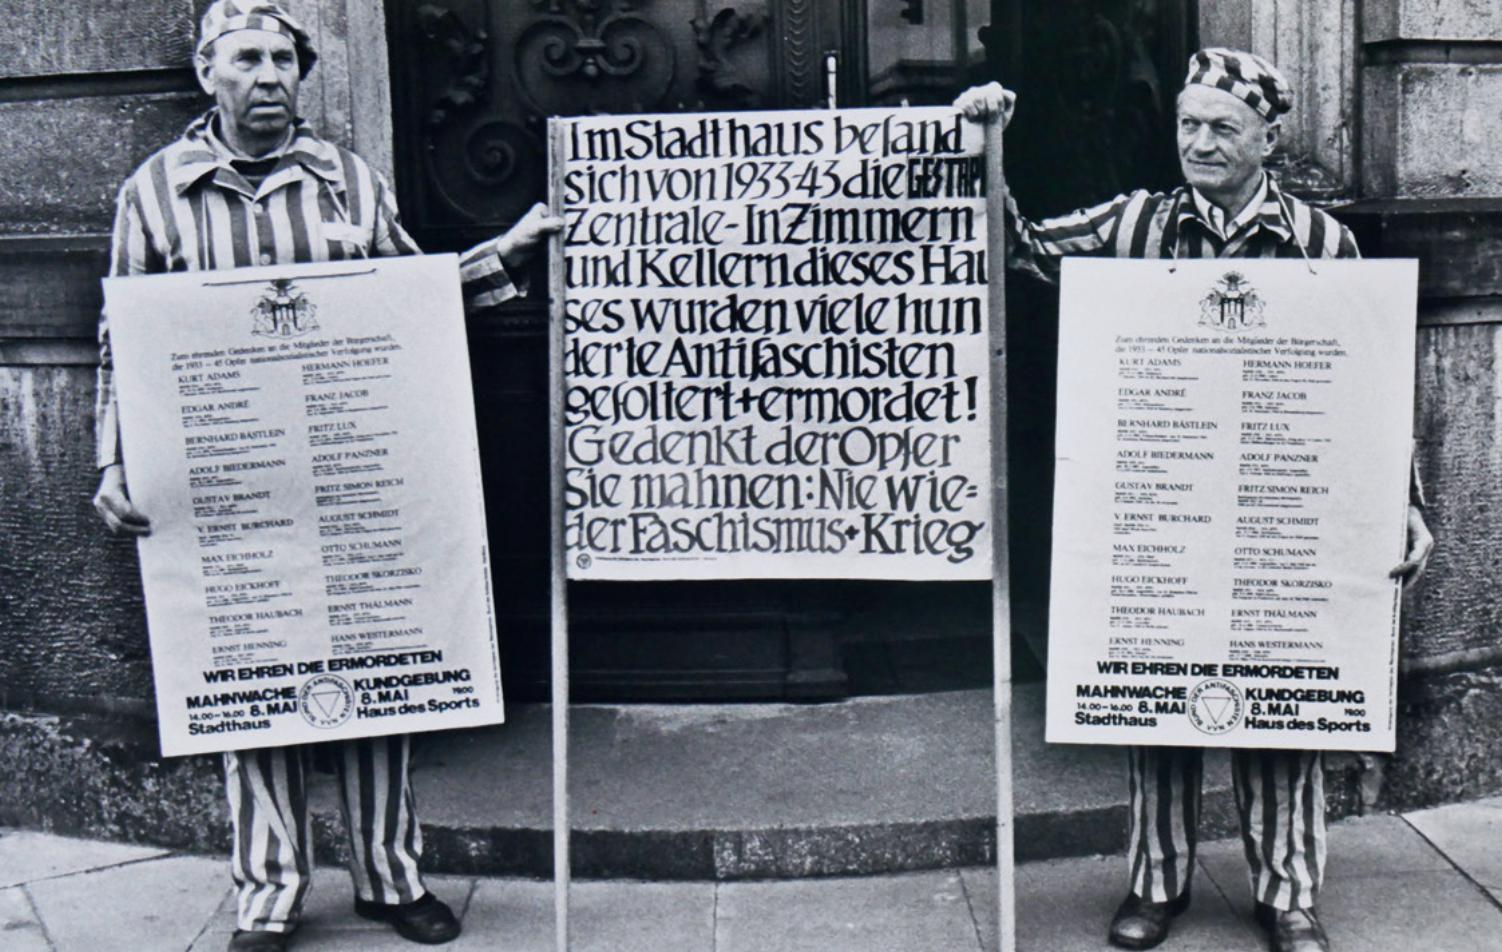 Zum ehrenden Gedenken an die Mitglieder der Bürgerschaft,
die 1933 – 45 Opfer nationalsozialistischer Verfolgung wurden.
KURT ADAMS
EDGAR ANDRÉ
BERNHARD BÄSTLEIN
ADOLF BIEDERMANN
GUSTAV BRANDT
V. ERNST BURCHARD
MAX EICHHOLZ
HUGO EICKHOFF
THEODOR HAUBACH
ERNST HENNING
HERMANN HOEFER
FRANZ JACOB
FRITZ LUX
ADOLF PANZNER
FRITZ SIMON REICH
AUGUST SCHMIDT
OTTO SCHUMANN
THEODOR SKORZISKO
ERNST THÄLMANN
HANS WESTERMANN
WIR EHREN DIE ERMORDETEN
MAHNWACHE
14.00–16.00 8. MAI
Stadthaus
BUND DER ANTIFASCHISTEN
VVN
KUNDGEBUNG
8. MAI 1900
Haus des Sports
Im Stadthaus befand
sich von 1933-43 die GESTAP
Zentrale - In Zimmern
und Kellern dieses Hau
ses wurden viele hun
derte Antifaschisten
gefoltert + ermordet!
Gedenkt der Opfer
Sie mahnen: Nie wie=
der Faschismus + Krieg
Zum ehrenden Gedenken an die Mitglieder der Bürgerschaft,
die 1933 – 45 Opfer nationalsozialistischer Verfolgung wurden.
KURT ADAMS
EDGAR ANDRÉ
BERNHARD BÄSTLEIN
ADOLF BIEDERMANN
GUSTAV BRANDT
V. ERNST BURCHARD
MAX EICHHOLZ
HUGO EICKHOFF
THEODOR HAUBACH
ERNST HENNING
HERMANN HOEFER
FRANZ JACOB
FRITZ LUX
ADOLF PANZNER
FRITZ SIMON REICH
AUGUST SCHMIDT
OTTO SCHUMANN
THEODOR SKORZISKO
ERNST THÄLMANN
HANS WESTERMANN
WIR EHREN DIE ERMORDETEN
MAHNWACHE
14.00–16.00 8. MAI
Stadthaus
BUND DER ANTIFASCHISTEN
VVN
KUNDGEBUNG
8. MAI 1900
Haus des Sports